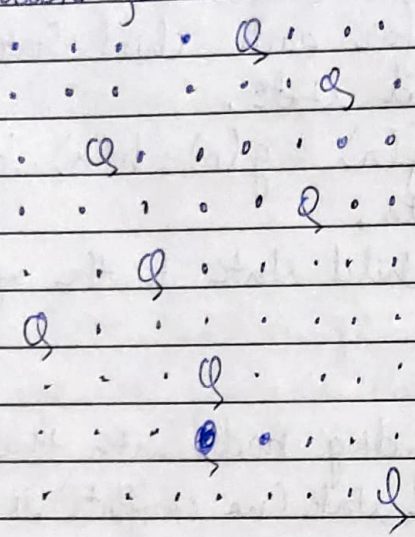 . . . . Q . . .
. . . . . . Q .
. Q . . . . . .
. . . . . Q . .
. . Q . . . . .
Q . . . . . . .
. . . Q . . . .
. . . . . . .
. . . . . . . Q